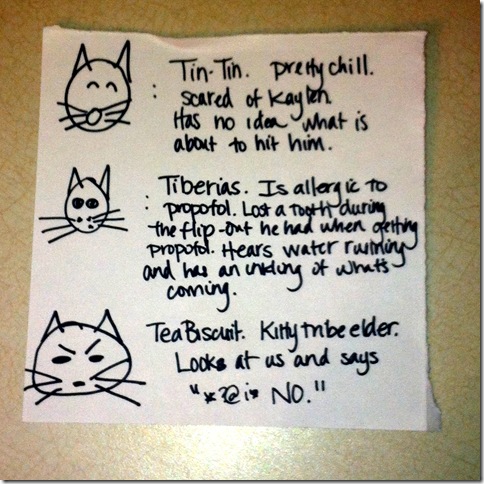 : Tin-Tin. Pretty chill.
scared of Kaylen.
Has no idea what is
about to hit him.
: Tiberias. Is allergic to
propofol. Lost a tooth during
the flip-out he had when getting
propofol. Hears water running
and has an inkling of what's
coming.
TeaBiscuit. Kitty tribe elder.
Looks at us and says
"*?@!* NO."